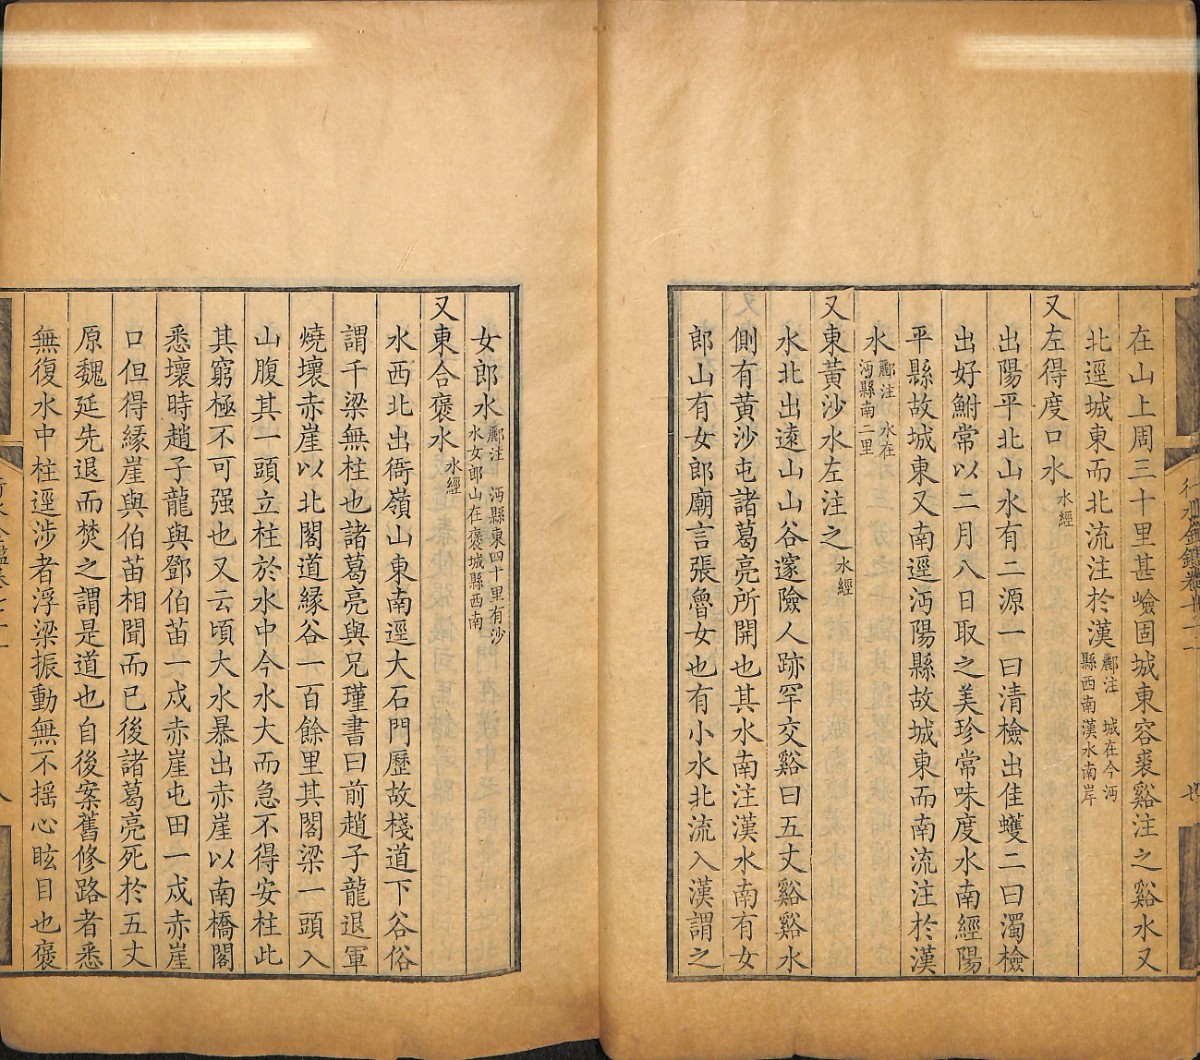 在山上周三十里甚嶮固城東容裘谿注之谿水又
北逕城東而北流注於漢酈注 城在今沔縣西南漢水南岸
又左得度口水水經
出陽平北山水有二源一曰清檢出佳蠖二曰濁檢
出好鮒常以二月八日取之美珍常味度水南經陽
平縣故城東又南逕沔陽縣故城東而南流注於漢
水酈注 水在沔縣南二里
又東黃沙水左注之水經
水北出遠山山谷邃險人跡罕交谿曰五丈谿谿水
側有黃沙屯諸葛亮所開也其水南注漢水南有女
郎山有女郎廟言張魯女也有小水北流入漢謂之
女郎水酈注 沔縣東四十里有沙水女郎山在褒城縣西南
又東合褒水水經
水西北出衙嶺山東南逕大石門歷故棧道下谷俗
謂千梁無柱也諸葛亮與兄瑾書曰前趙子龍退軍
燒壞赤崖以北閣道緣谷一百餘里其閣梁一頭入
山腹其一頭立柱於水中今水大而急不得安柱此
其窮極不可强也又云頃大水暴出赤崖以南橋閣
悉壞時趙子龍與鄧伯苗一戍赤崖屯田一戍赤崖
口但得緣崖與伯苗相聞而已後諸葛亮死於五丈
原魏延先退而焚之謂是道也自後案舊修路者悉
無復水中柱逕涉者浮梁振動無不搖心眩目也褒